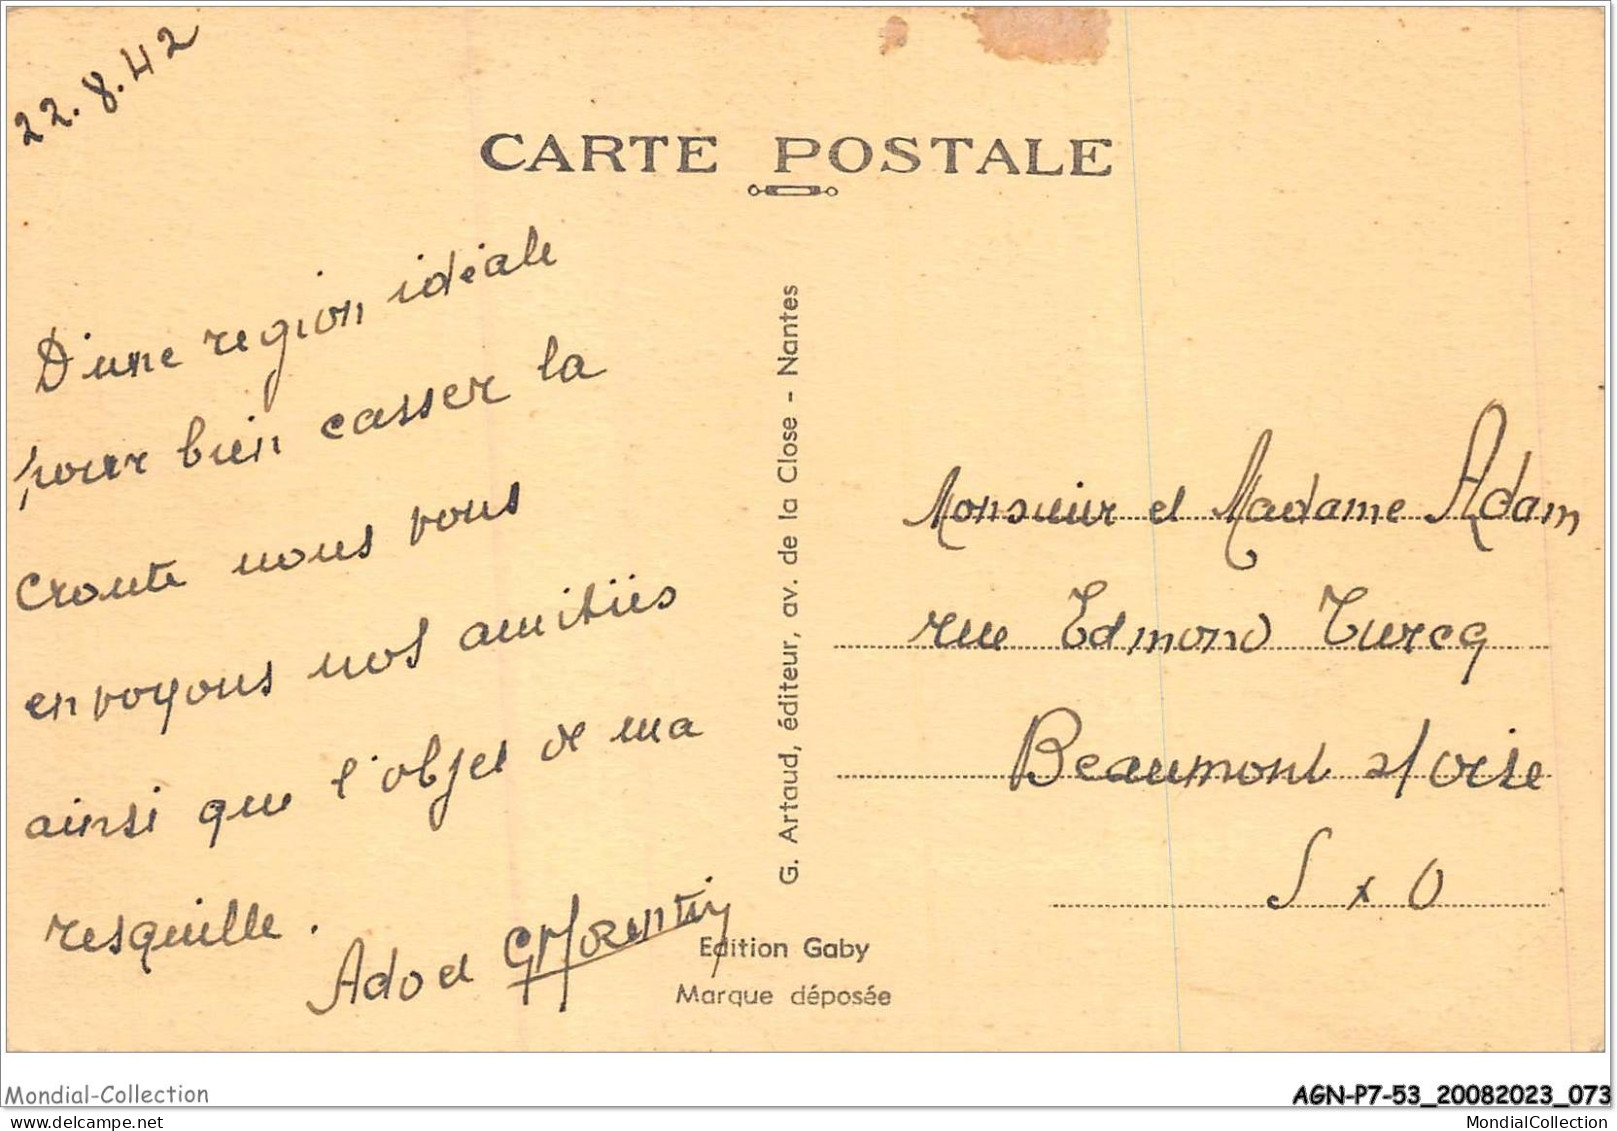 22.8.42
CARTE POSTALE
D'une region idéale
pour bien casser la
croute nous vous
envoyons nos amitiés
ainsi que l'objet de ma
resquille.
Ado et
G. Artaud, éditeur, av. de la Close - Nantes
Edition Gaby
Marque déposée
Monsieur et Madame Adam
rue Edmond Turcq
Beaumont s/ oise
S x O
Mondial-Collection
AGN-P7-53_20082023_073
MondialCollection